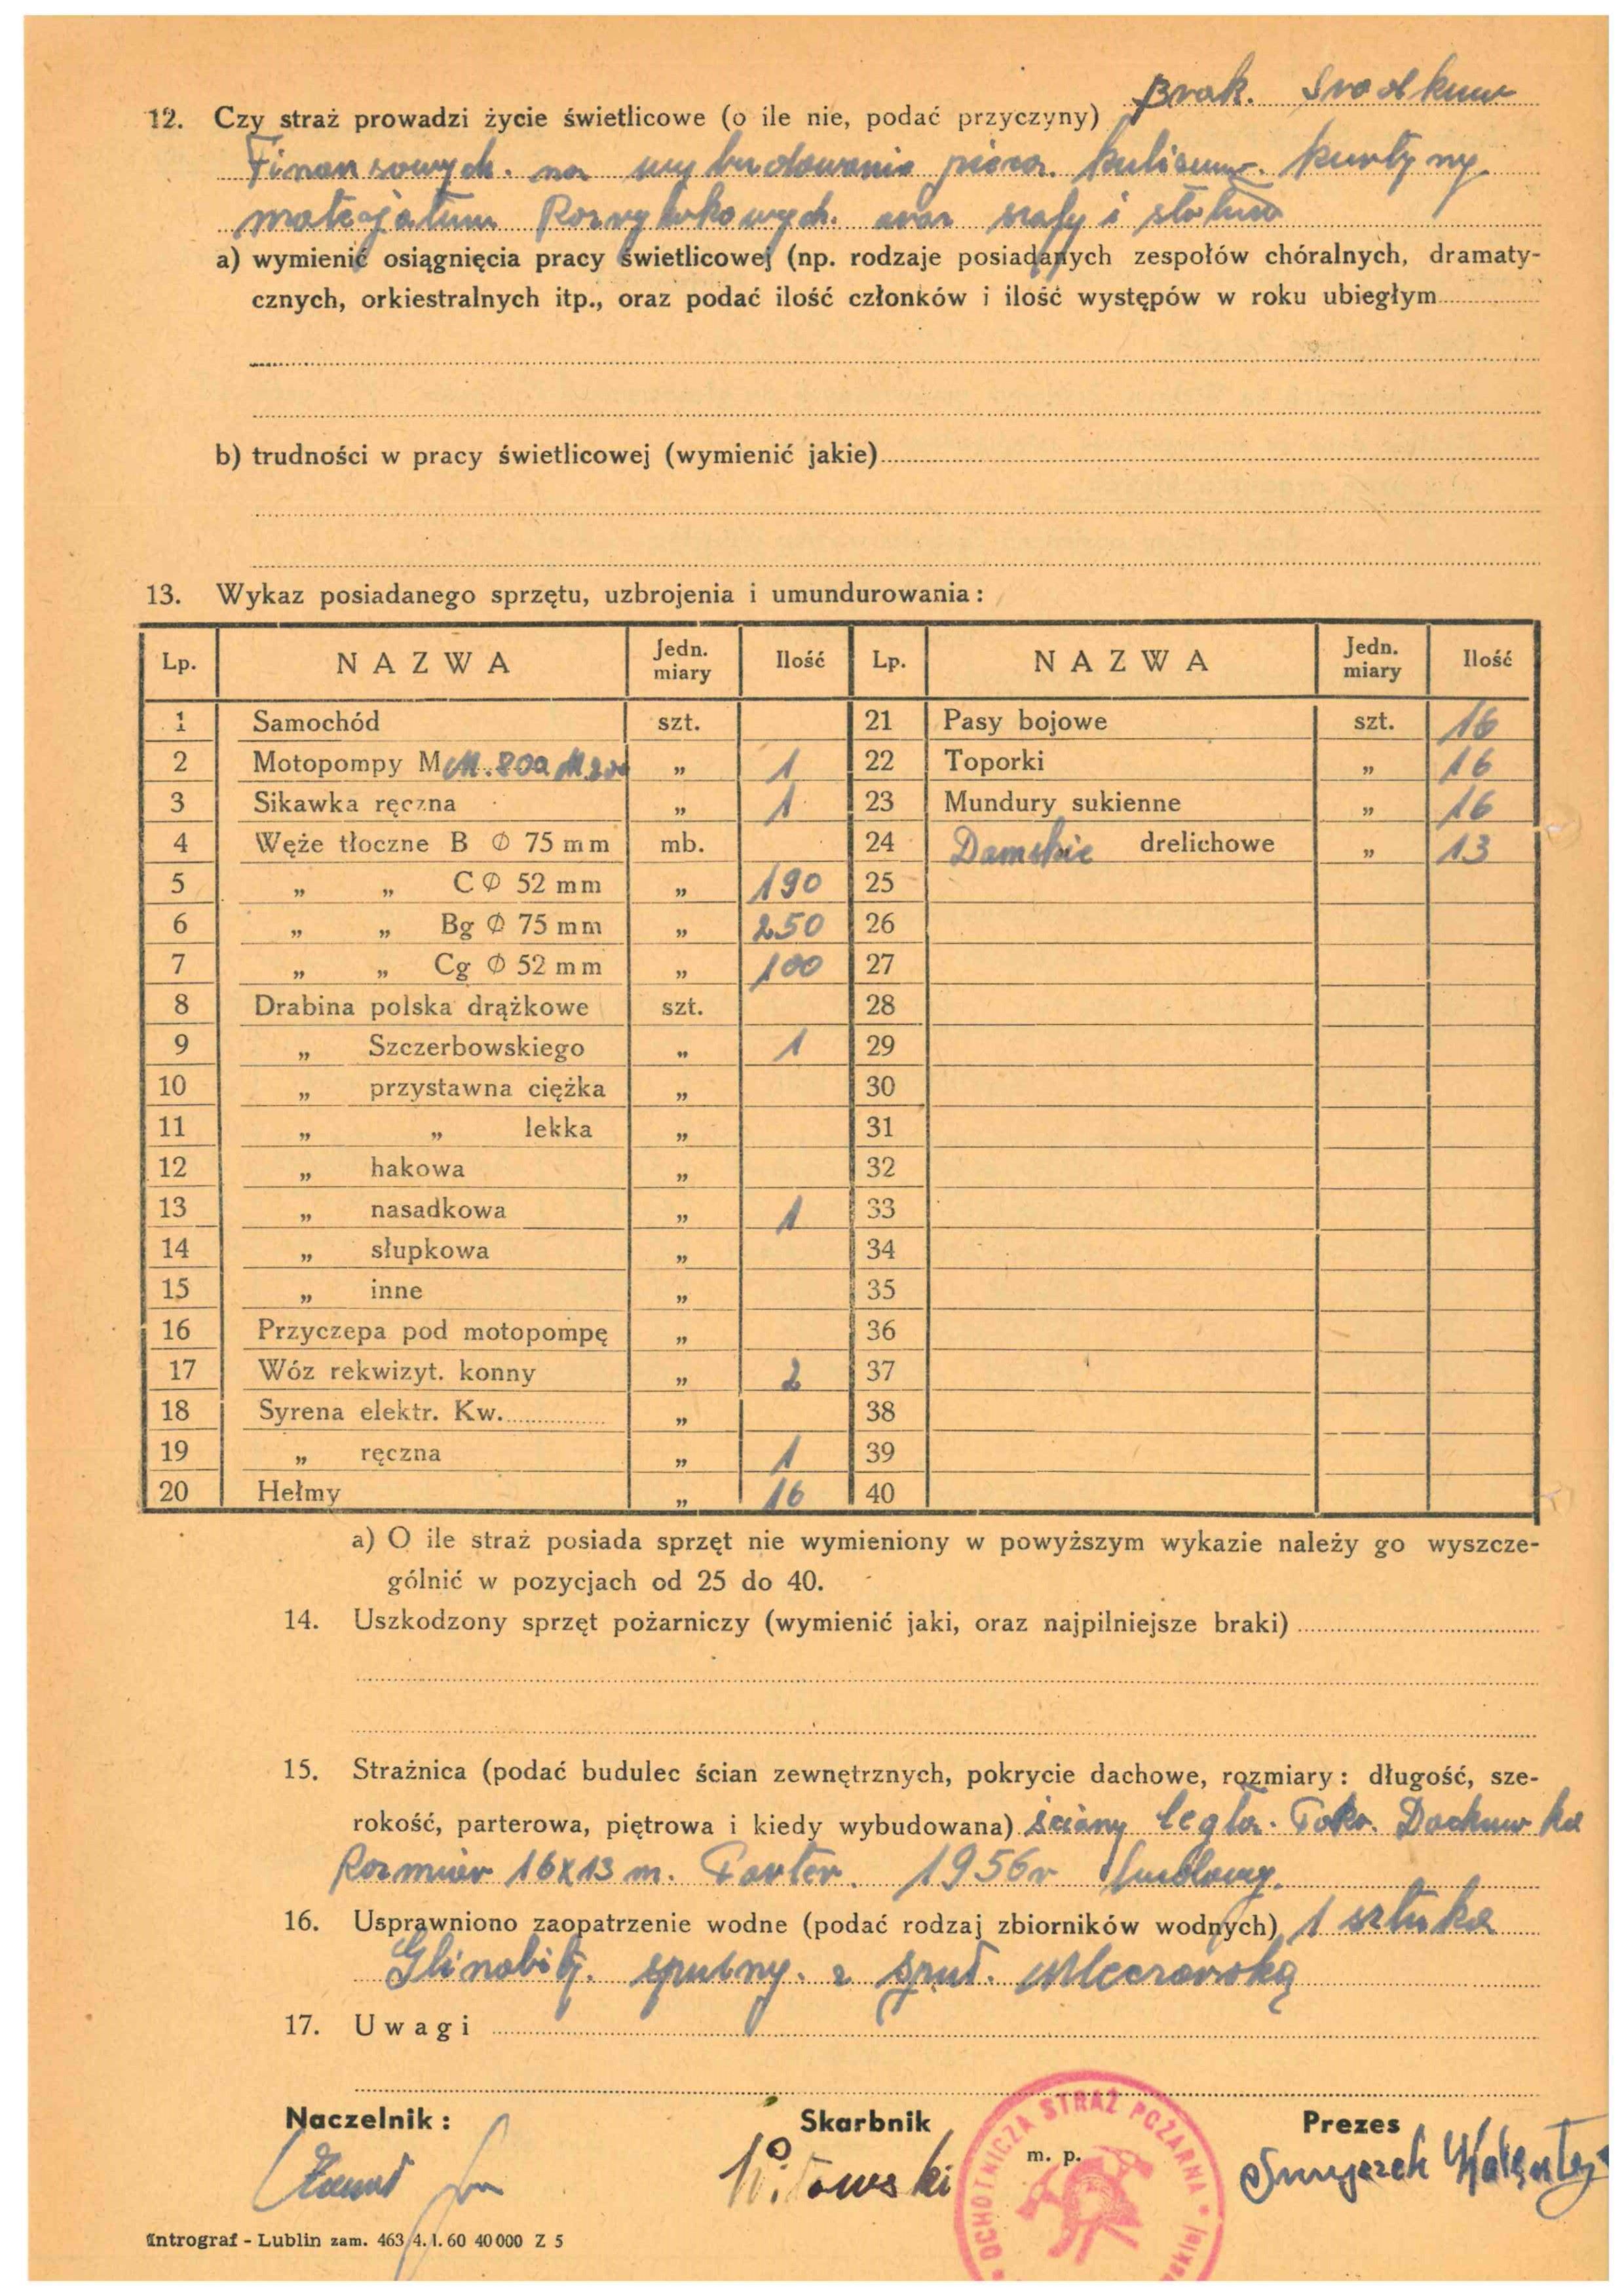 12. Czy straż prowadzi życie świetlicowe (o ile nie, podać przyczyny) Brak. Srodkuw
Finansowych. na wybudowanie pieca. kulisuw. kurtyny
materjałuw Rozrywkowych. oraz szafy i stołuw
a) wymienić osiągnięcia pracy świetlicowej (np. rodzaje posiadanych zespołów chóralnych, dramaty-
cznych, orkiestralnych itp., oraz podać ilość członków i ilość występów w roku ubiegłym
b) trudności w pracy świetlicowej (wymienić jakie)
13. Wykaz posiadanego sprzętu, uzbrojenia i umundurowania:
Lp. NAZWA Jedn. miary Ilość Lp. NAZWA Jedn. miary Ilość
1 Samochód szt. 21 Pasy bojowe szt. 16
2 Motopompy M M.800 „ 1 22 Toporki „ 16
3 Sikawka ręczna „ 1 23 Mundury sukienne „ 16
4 Węże tłoczne B ∅ 75 mm mb. 24 Damskie drelichowe „ 13
5 „ „ C ∅ 52 mm „ 190 25
6 „ „ Bg ∅ 75 mm „ 250 26
7 „ „ Cg ∅ 52 mm „ 100 27
8 Drabina polska drążkowe szt. 28
9 „ Szczerbowskiego „ 1 29
10 „ przystawna ciężka „ 30
11 „ „ lekka „ 31
12 „ hakowa „ 32
13 „ nasadkowa „ 1 33
14 „ słupkowa „ 34
15 „ inne „ 35
16 Przyczepa pod motopompę „ 36
17 Wóz rekwizyt. konny „ 2 37
18 Syrena elektr. Kw. „ 38
19 „ ręczna „ 1 39
20 Hełmy „ 16 40
a) O ile straż posiada sprzęt nie wymieniony w powyższym wykazie należy go wyszcze-
gólnić w pozycjach od 25 do 40.
14. Uszkodzony sprzęt pożarniczy (wymienić jaki, oraz najpilniejsze braki)
15. Strażnica (podać budulec ścian zewnętrznych, pokrycie dachowe, rozmiary: długość, sze-
rokość, parterowa, piętrowa i kiedy wybudowana) ściany cegła. Pokr. Dachuwka
Rozmiar 16x13 m. Parter. 1956r
16. Usprawniono zaopatrzenie wodne (podać rodzaj zbiorników wodnych) 1 sztuka
Glinobity. spulny. z spuł. Mleczarską
17. Uwagi
Naczelnik: Skarbnik m. p. Prezes
Witowski
OCHOTNICZA STRAŻ POŻARNA
Intrograf - Lublin zam. 463 4.I.60 40000 Z 5